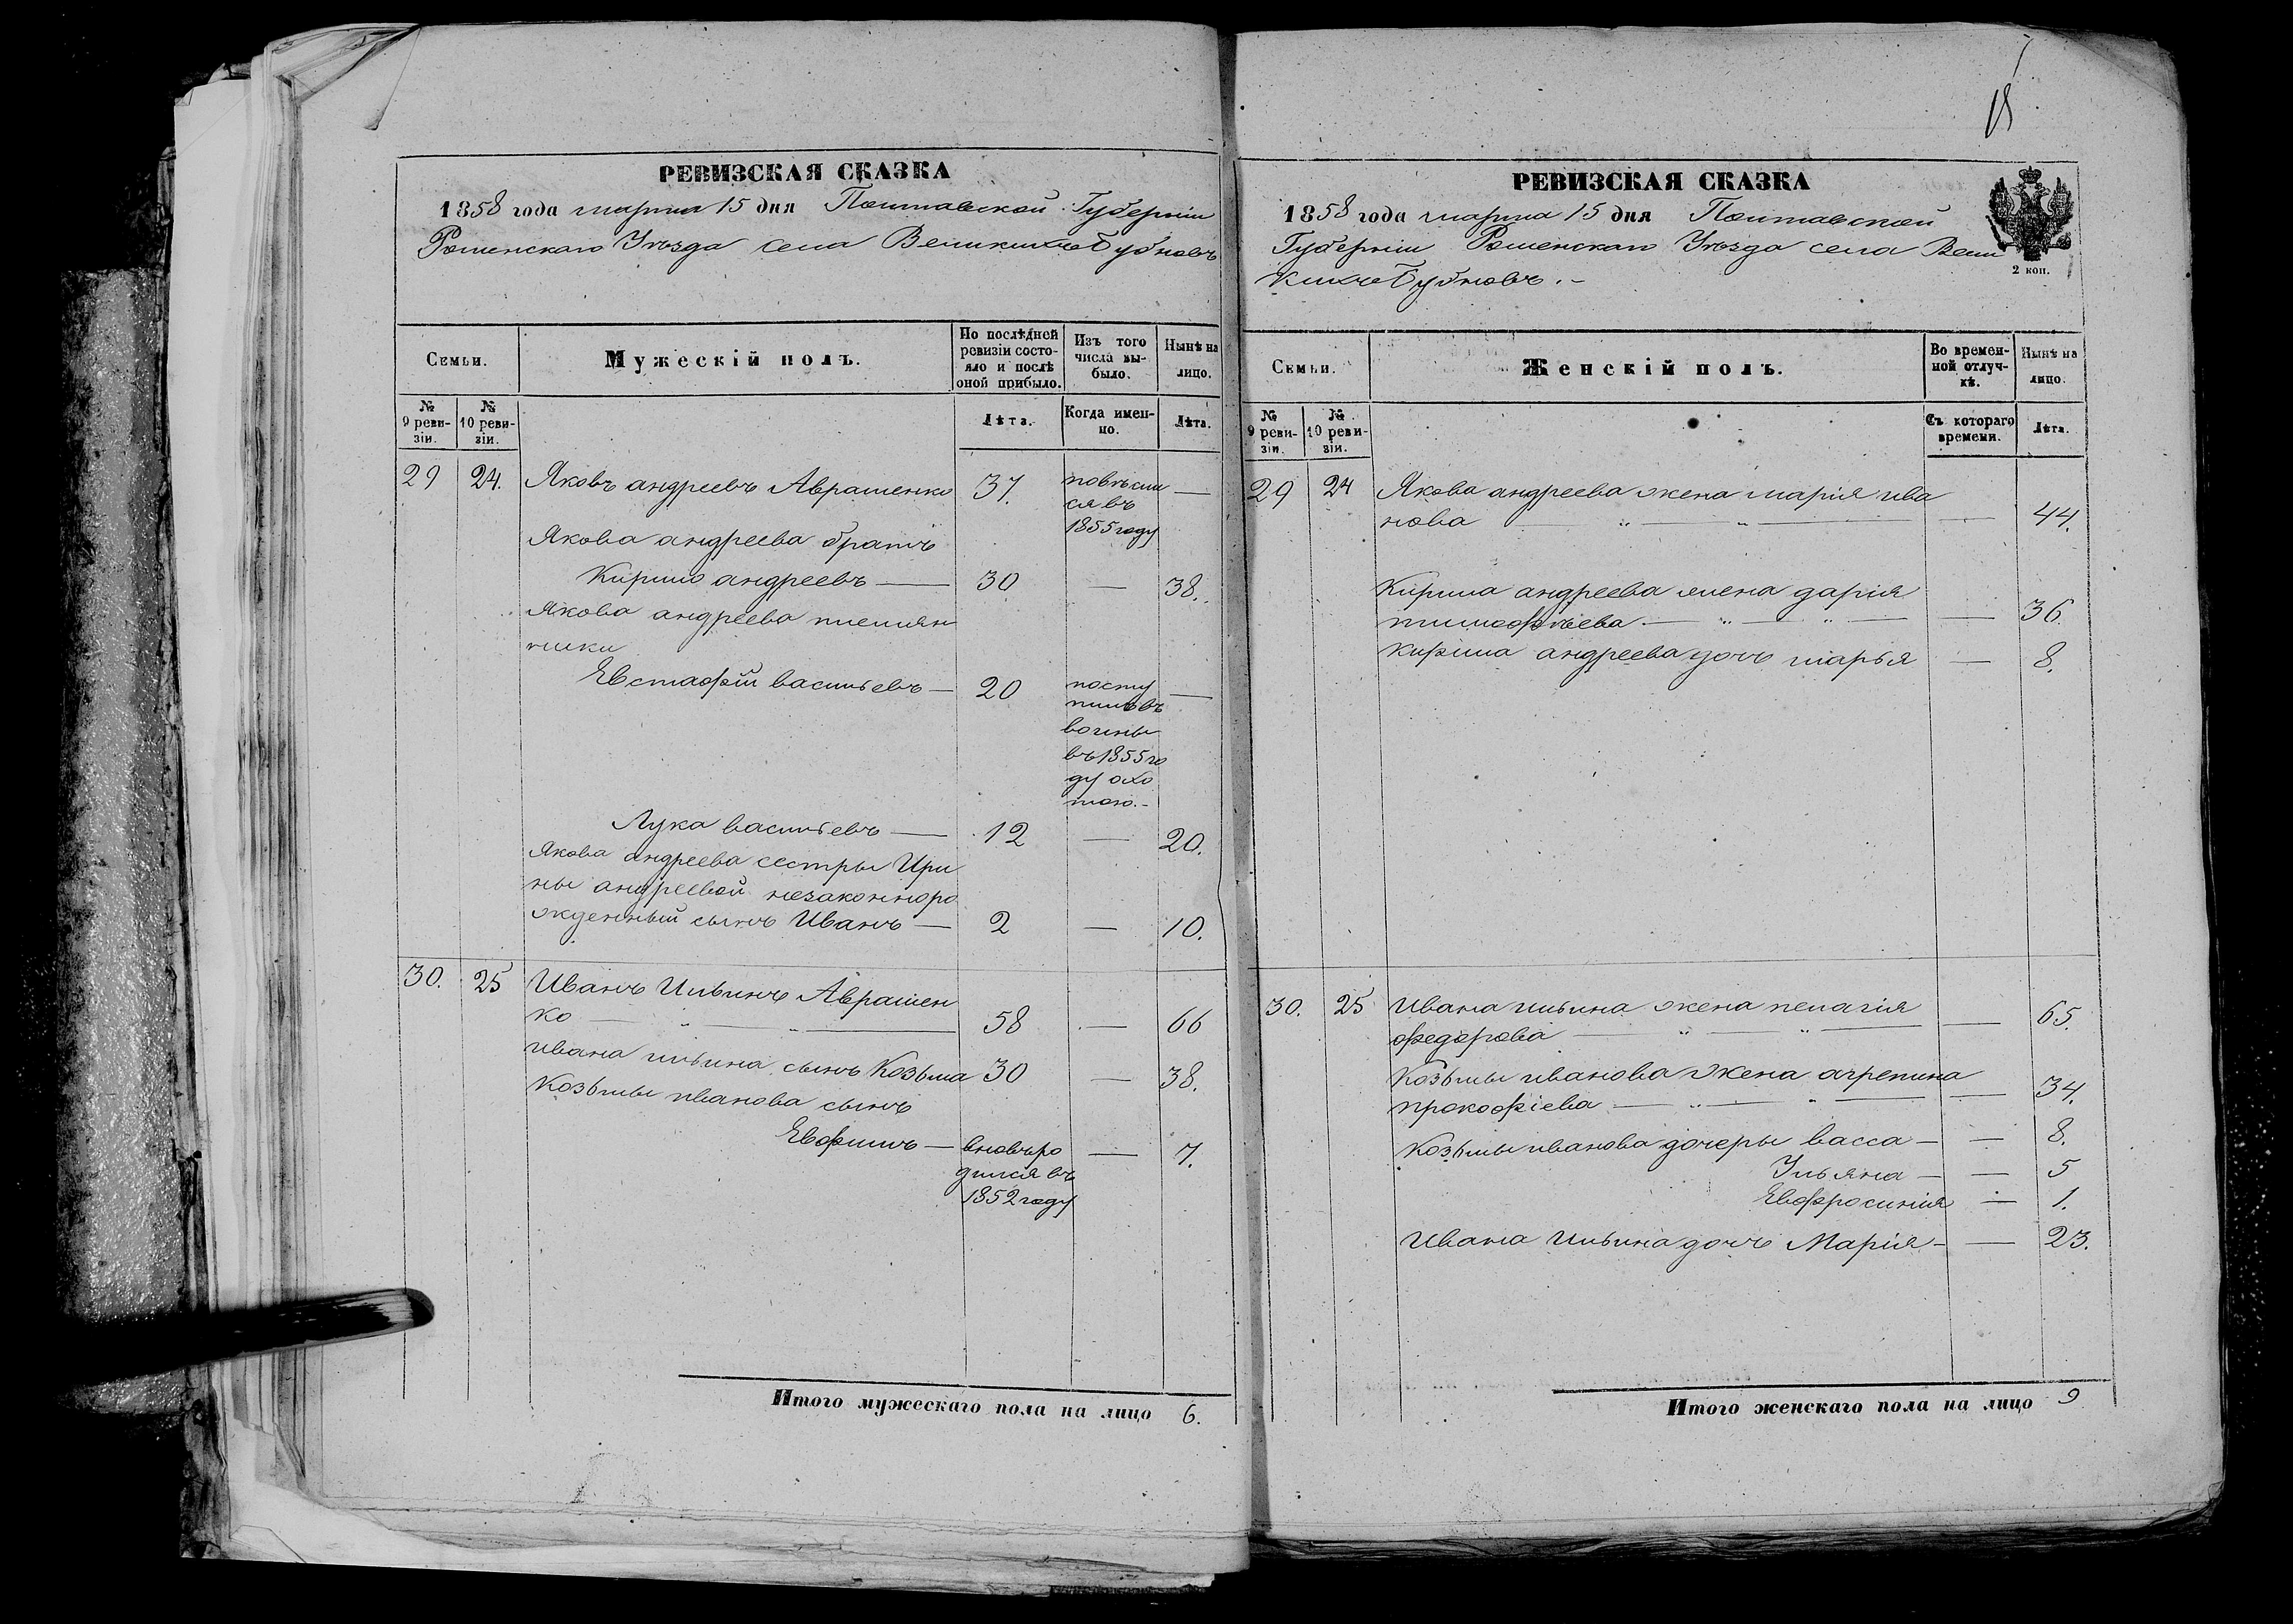 РЕВИЗСКАЯ СКАЗКА
1858 года марта 15 дня Полтавской Губерніи
Роменскаго Уѣзда села Великихъ Бубновъ
Семьи.
Мужескій полъ.
По послѣдней ревизіи состояло и послѣ оной прибыло.
Изъ того числа выбыло.
Нынѣ на лицо.
№ 9 ревизіи.
№ 10 ревизіи.
Лѣта.
Когда именно.
Лѣта.
29 24. Яковъ андреевъ Аврашенко 37. повѣсил —
ся въ
1855 году
Якова андреева братъ
Кирило андреевъ — 30 — 38.
Якова андреева племян
ники
Евстафій васильевъ — 20 посту —
пилъ въ
воины
въ 1855 го
ду охо
тою.-
Лука васильевъ — 12 — 20.
Якова андреева сестры Ири
ны андреевой незаконноро
жденный сынъ Иванъ — 2 — 10.
30. 25 Иванъ Ильинъ Аврашен
ко — „ — „ — 58 — 66
ивана ильина сынъ Козьма 30 — 38.
Козьмы иванова сынъ
Евфимъ — вновь ро — 7.
дился въ
1852 году
Итого мужескаго пола на лицо 6.
РЕВИЗСКАЯ СКАЗКА
1858 года марта 15 дня Полтавской
Губерніи Роменскаго Уѣзда села Вели
кихъ Бубновъ.-
2 коп.
Семьи.
Женскій полъ.
Во временной отлучкѣ.
Нынѣ на лицо.
№ 9 ревизіи.
№ 10 ревизіи.
Съ котораго времени.
Лѣта.
29 24 Якова андреева жена марія ива
нова — „ — „ — — 44.
Кирила андреева жена дарія
тимофѣева — „ — „ — — 36.
Кирила андреева дочь марья — 8.
30. 25 Ивана ильина жена пелагія
федорова — „ — „ — — 65.
Козьмы иванова жена агрепина
прокофіева — „ — „ — — 34.
Козьмы иванова дочеры васса — — 8.
Ульяна — — 5
Евфросинія — 1.
Ивана Ильина дочь Марія — — 23.
Итого женскаго пола на лицо 9